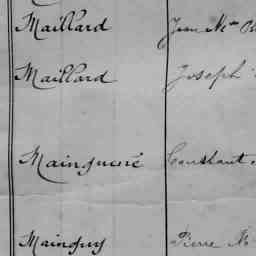 Maillard Jean Mie
Maillard Joseph
Mainguené Constant
Mainguy Pierre M